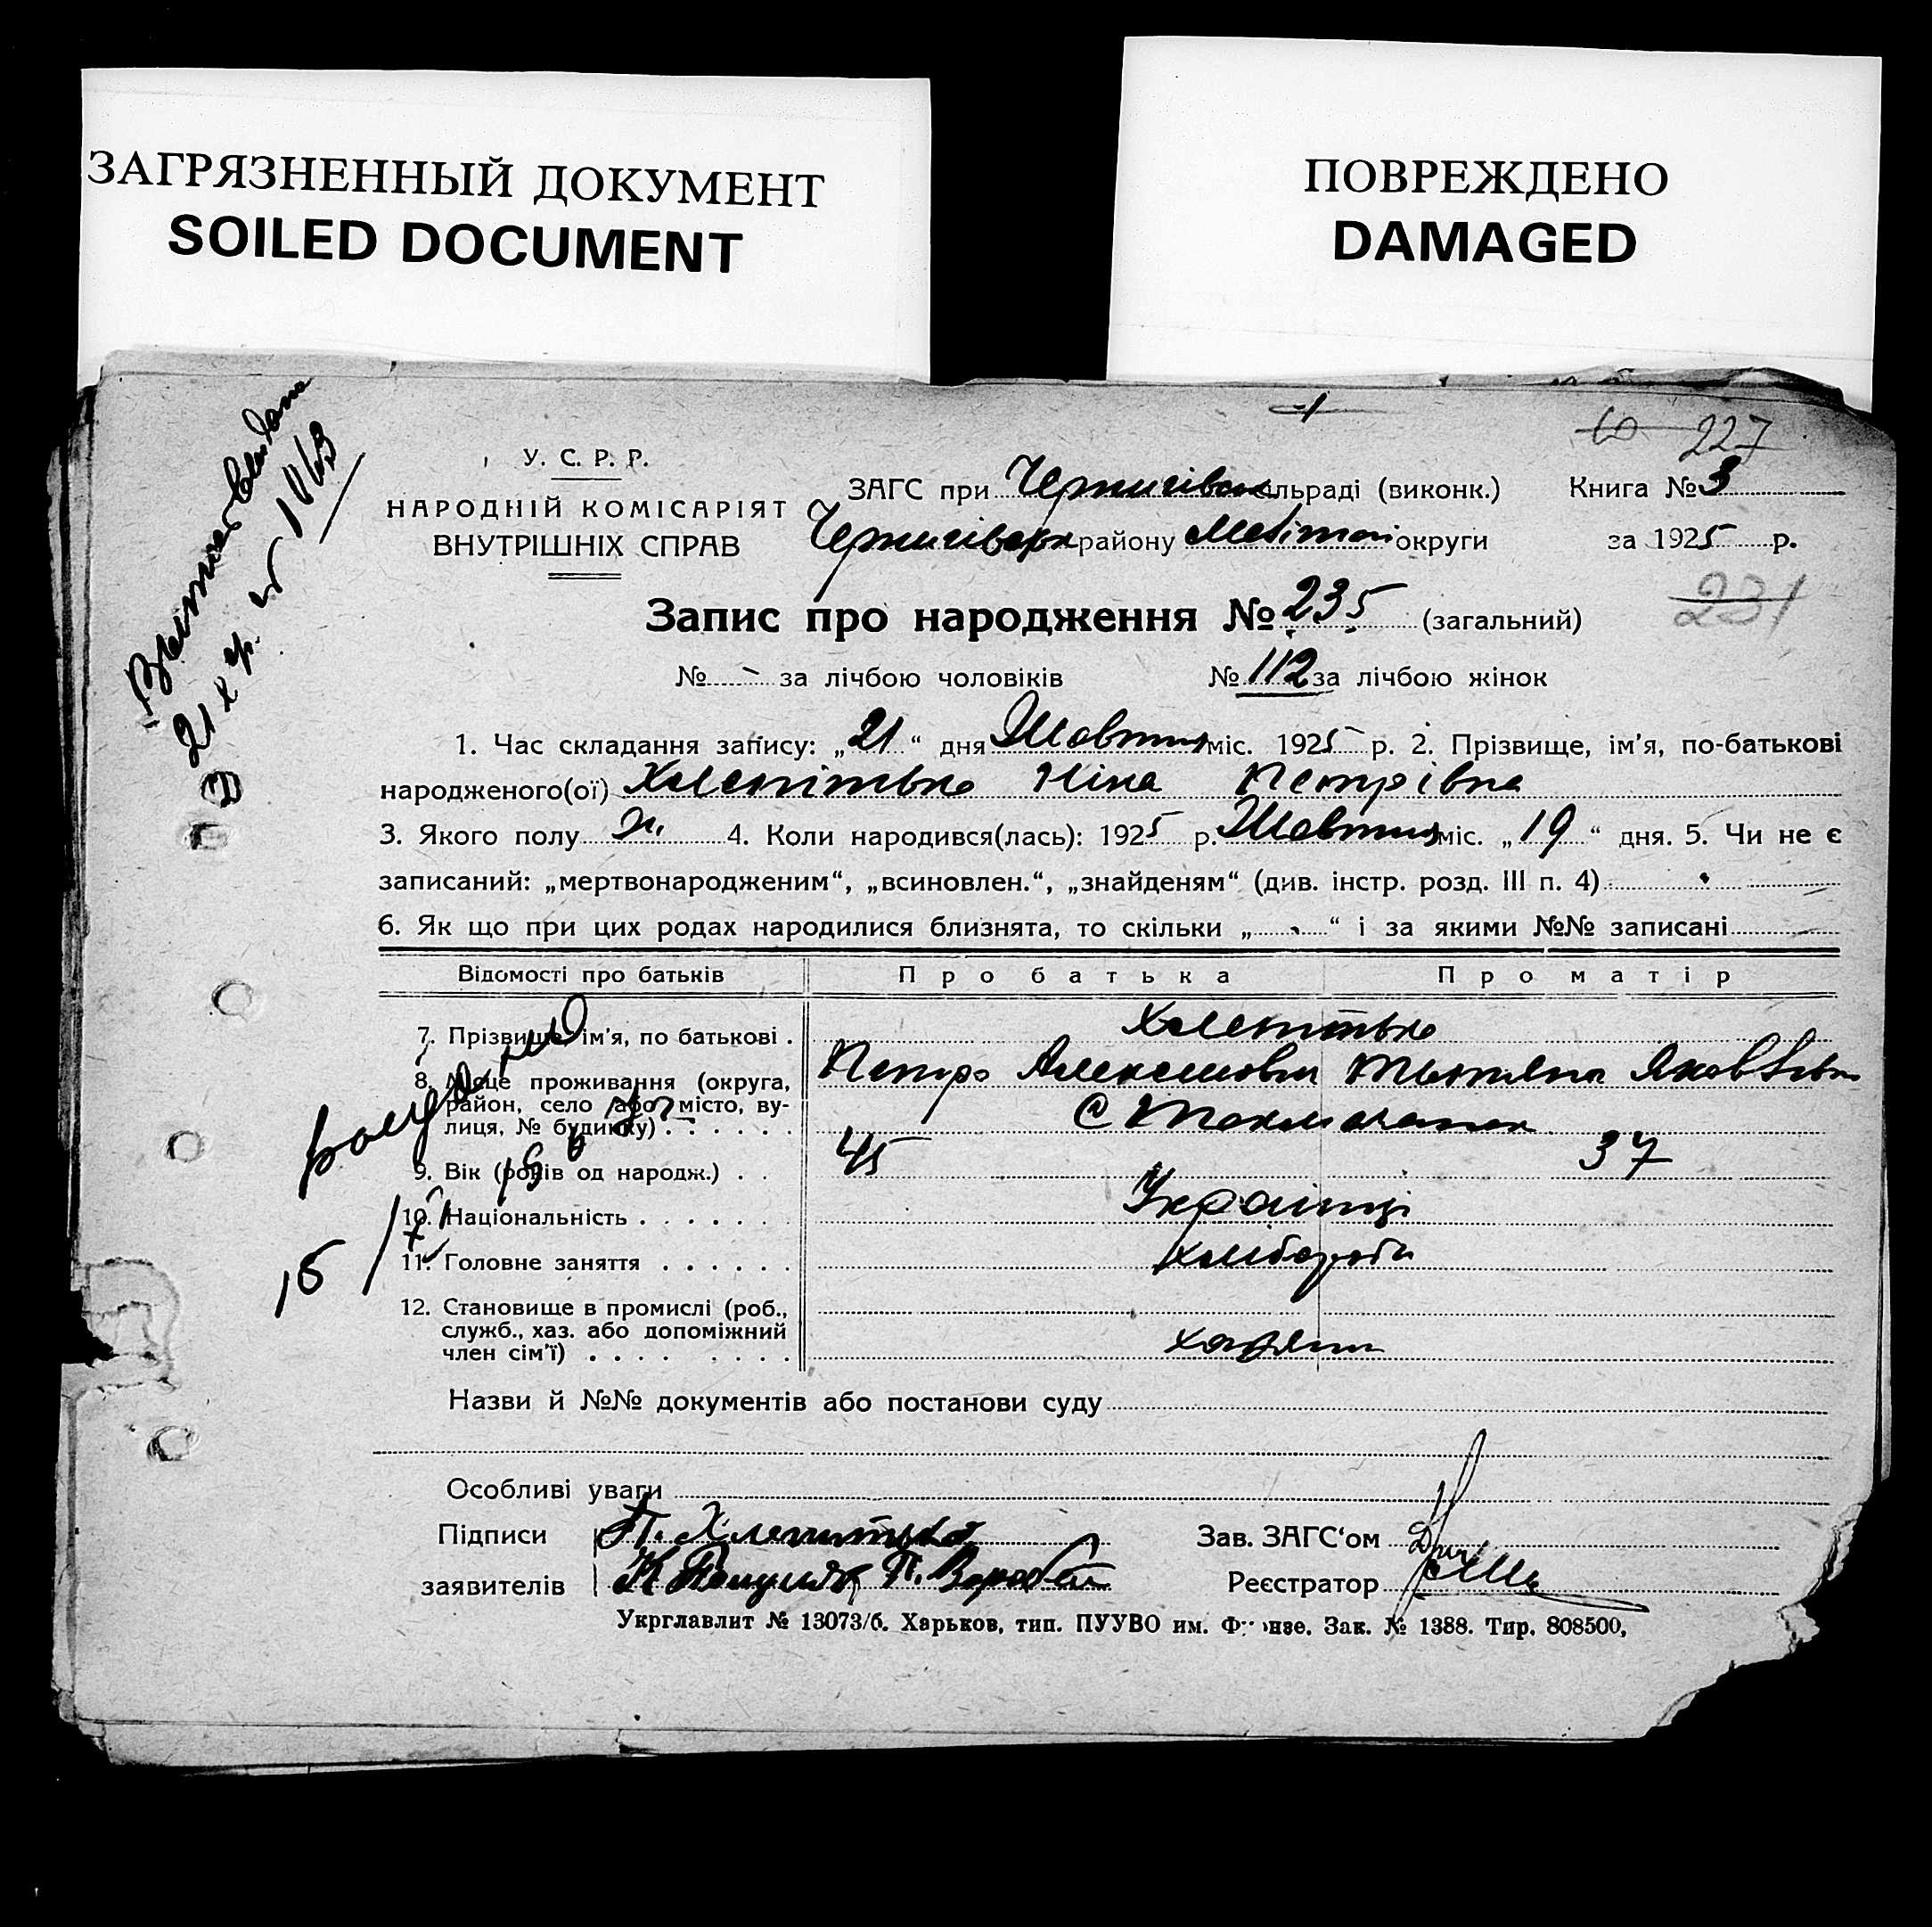 ЗАГРЯЗНЕННЫЙ ДОКУМЕНТ
SOILED DOCUMENT
ПОВРЕЖДЕНО
DAMAGED
227
У. С. Р. Р.
НАРОДНІЙ КОМІСАРІЯТ
ВНУТРІШНІХ СПРАВ
ЗАГС при Чернигівськ сільраді (виконк.) Книга № 3
Чернигівськ району Меліт округи за 1925 р.
231
Запис про народження № 235 (загальний)
№ - за лічбою чоловіків № 112 за лічбою жінок
1. Час складання запису: „21“ дня Жовтня міс. 1925 р. 2. Прізвище, ім'я, по-батькові
народженого(ої) Хлепітько Ніна Петрівна
3. Якого полу ж. 4. Коли народився(лась): 1925 р. Жовтня міс. „19“ дня. 5. Чи не є
записаний: „мертвонародженим“, „всиновлен.“, „знайденям“ (див. інстр. розд. III п. 4)
6. Як що при цих родах народилися близнята, то скільки „ “ і за якими №№ записані
Відомості про батьків Про батька Про матір
7. Прізвище, ім'я, по батькові . Хлепітько
Петро Алексеевич Татьяна Яковлівна
8. Місце проживання (округа,
район, село або місто, ву-
лиця, № будинку) . . . . . . с Токмачанск
9. Вік (років од народж.) . . 45 37
10. Національність . . . . . . . Українці
11. Головне заняття . . . . . . хлібороби
12. Становище в промислі (роб.,
служб., хаз. або допоміжний
член сім'ї) . . . . . . . . хазяин
Назви й №№ документів або постанови суду
Особливі уваги
Підписи П. Хлепітько Зав. ЗАГС‘ом
заявителів П. Воробей Реєстратор
Укрглавлит № 13073/б. Харьков, тип. ПУУВО им. Фрунзе. Зак. № 1388. Тир. 808500,